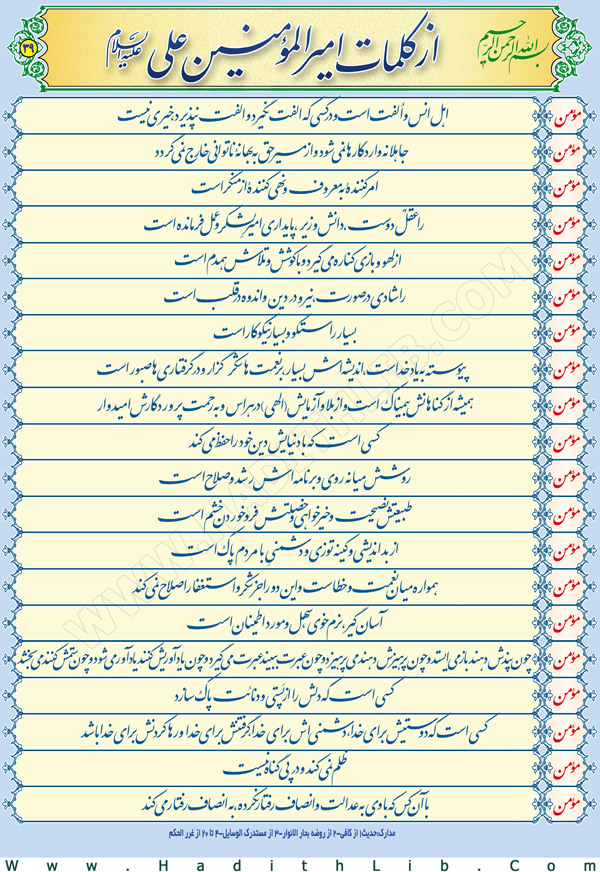 بسم الله الرحمن الرحیم
از کلمات امیرالمؤمنین علی علیه السلام
۳۹
مؤمن اهل انس و اُلفت است و در کسی که الفت نگیرد و الفت نپذیرد، خیری نیست
مؤمن جاهلانه وارد کارها نمی شود و از مسیر حق به بهانهٔ ناتوانی خارج نمی گردد
مؤمن امر کنندهٔ به معروف و نهی کنندهٔ از منکر است
مؤمن را عقل دوست، دانش وزیر، پایداری امیر لشکر و عمل فرمانده است
مؤمن از لهو و بازی کناره می گیرد و با کوشش و تلاش همدم است
مؤمن را شادی در صورت، نیرو در دین و اندوه در قلب است
مؤمن بسیار راستگو و بسیار نیکوکار است
مؤمن پیوسته به یاد خداست، اندیشه اش بسیار، بر نعمت ها شکر گزار و در گرفتاری ها صبور است
مؤمن همیشه از گناهانش بیمناک است و از بلا و آزمایش (الهی) در هراس و به رحمت پروردگارش امیدوار
مؤمن کسی است که با دنیایش دین خود را حفظ می کند
مؤمن روشش میانه روی و برنامه اش رشد و صلاح است
مؤمن طبیعتش نصیحت و خیرخواهی و خصلتش فرو خوردن خشم است
مؤمن از بد اندیشی و کینه توزی و دشمنیِ با مردم پاک است
مؤمن همواره میان نعمت و خطاست و این دو را جز شکر و استغفار اصلاح نمی کند
مؤمن آسان گیر، نرم خوی، سهل و مورد اطمینان است
مؤمن چون پندش دهند باز می ایستد و چون پرهیزش دهند می پرهیزد و چون عبرت ببیند عبرت می گیرد و چون یادآوریش کنند یادآوری شود و چون ستمش کنند می بخشد
مؤمن کسی است که دلش را از پستی و دنائت پاک سازد
مؤمن کسی است که دوستیش برای خدا، دشمنی اش برای خدا، گرفتنش برای خدا و رها کردنش برای خدا باشد
مؤمن ظلم نمی کند و در پی گناه نیست
مؤمن با آن کس که با وی به عدالت و انصاف رفتار نکرده، به انصاف رفتار می کند
مدارک: حدیث۱ از کافی-۲ از روضه بحار الانوار-۳ از مستدرک الوسایل-۴ تا ۲۰ از غرر الحکم
www.HadithLib.Com
WWW.HADITHLIB.COM